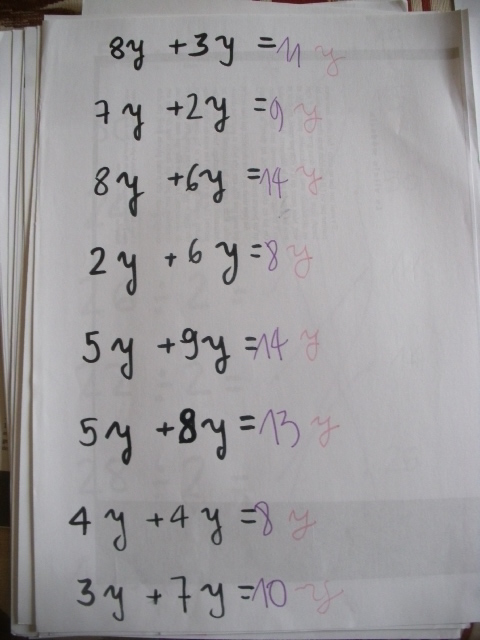 8y + 3y = 11 y
7y + 2y = 9 y
8y + 6y = 14 y
2y + 6y = 8 y
5y + 9y = 14 y
5y + 8y = 13 y
4y + 4y = 8 y
3y + 7y = 10 y